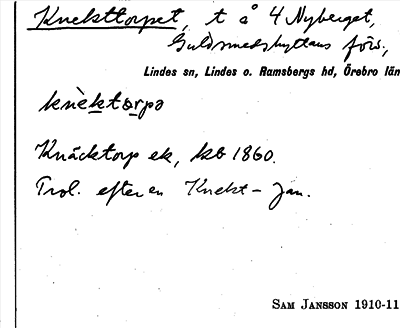 Knekttorpet, t å 4 Nyberget,
Guldsmedshyttans förs.,
Lindes sn, Lindes o. Ramsbergs hd, Örebro län
knèktơrpə
Knäcktorp ek, kb 1860.
Trol. efter en Knekt-Jan.
SAM JANSSON 1910-11